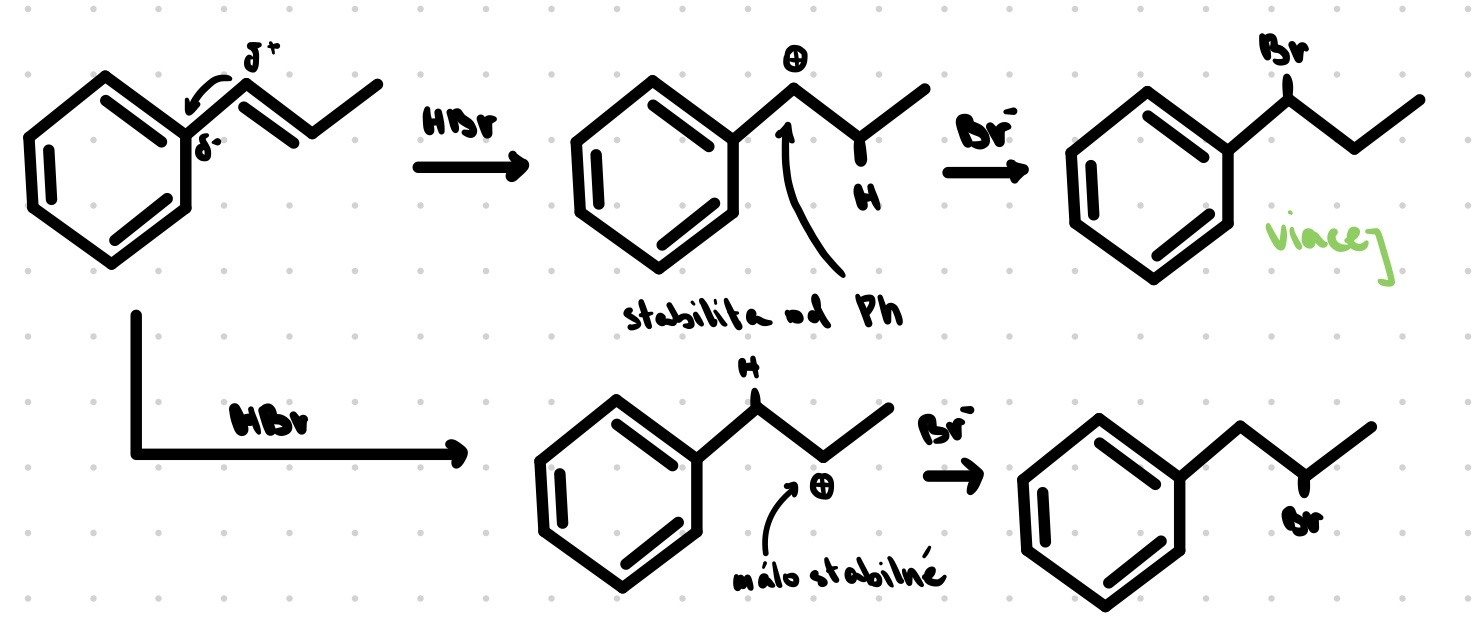 δ+
δ-
HBr
⊕
H
stabilita od Ph
Br-
Br
viacej
HBr
H
⊕
málo stabilné
Br-
Br